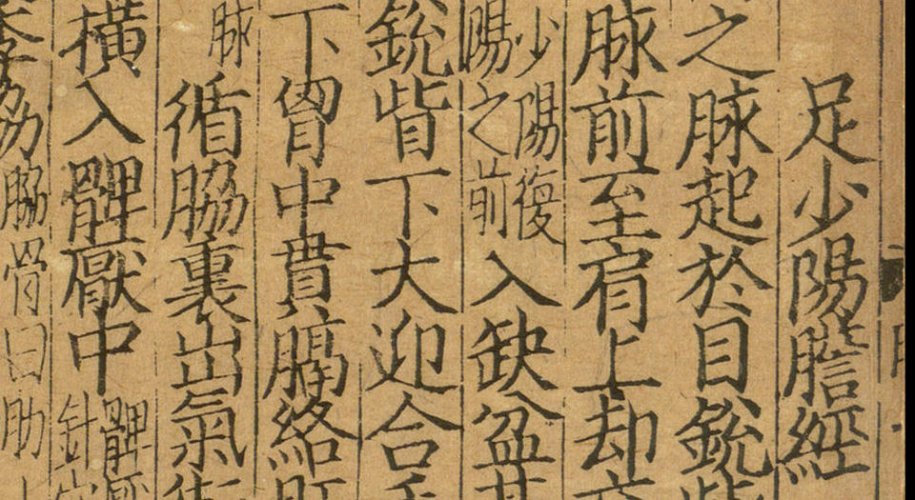 足少陽膽經
之脉起於目銳眥
脉前至肩上却交
少陽復
陽之前
入缺盆其
銳眥下大迎合手
下胷中貫膈絡肝
脉
循脇裏出氣街
橫入髀厭中
髀
針
脇骨曰肋